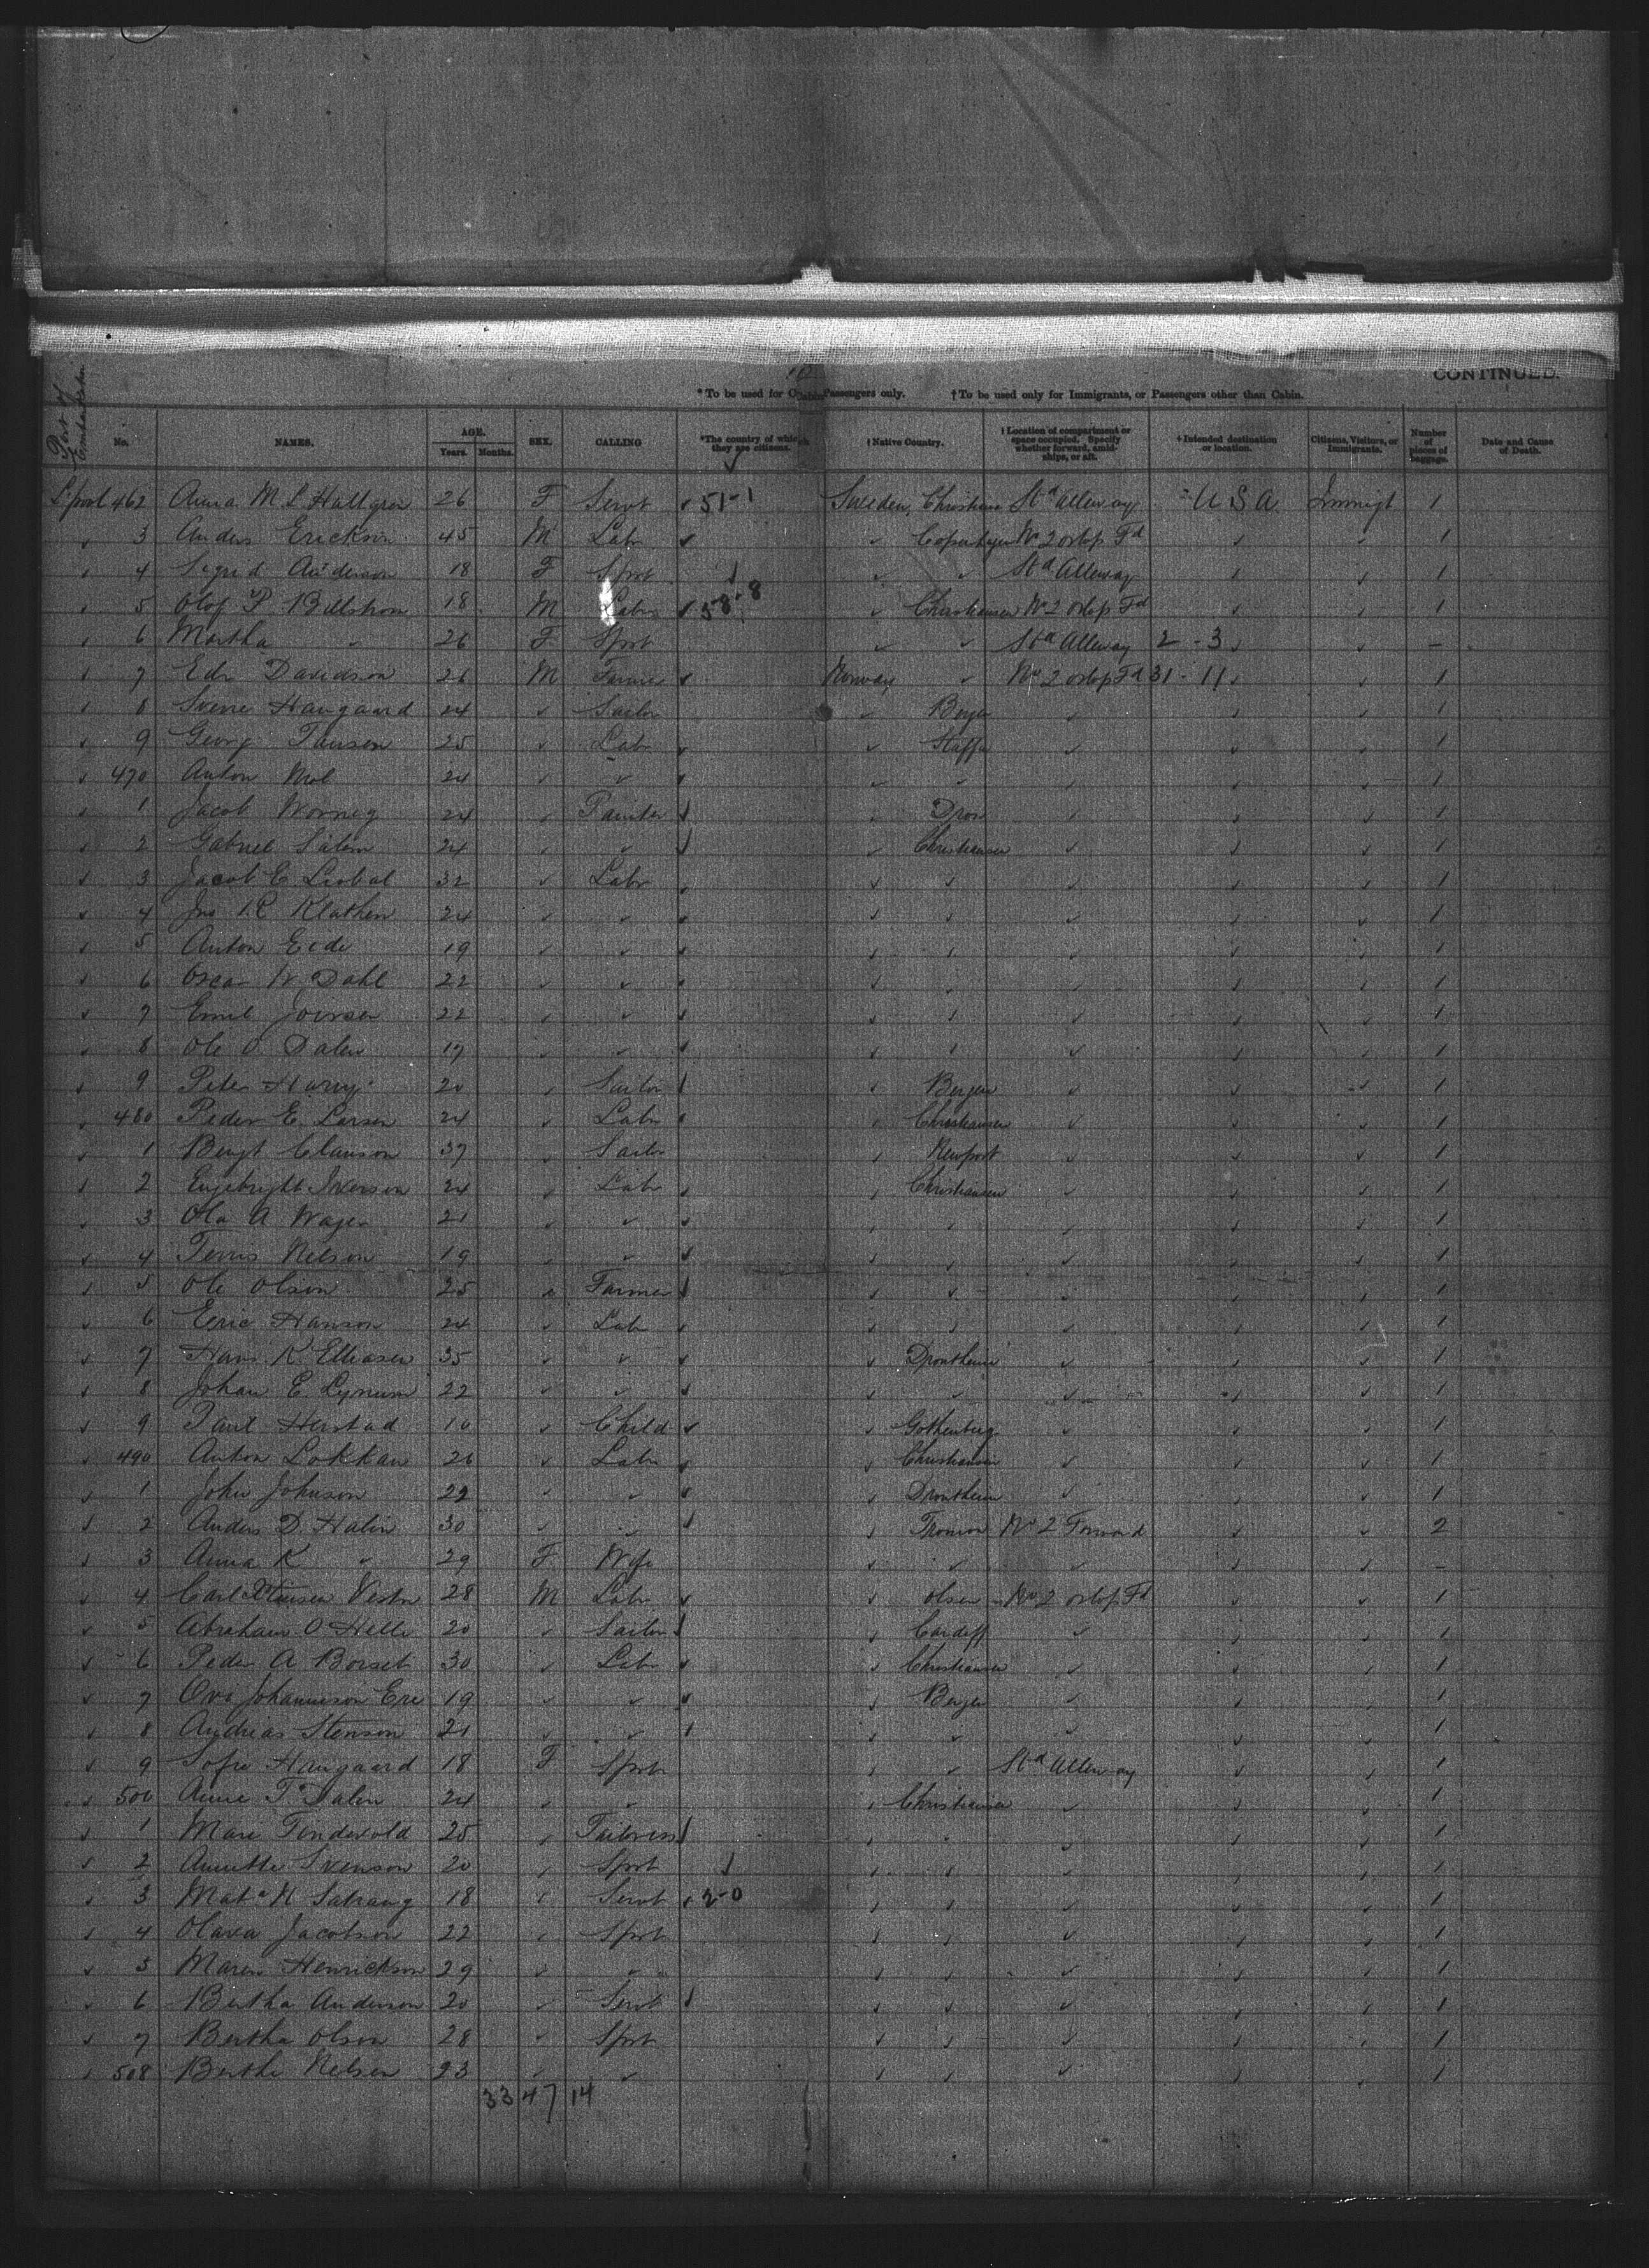 CONTINUED.
* To be used for Cabin Passengers only. † To be used only for Immigrants, or Passengers other than Cabin.
Port of Embarkation No. NAMES. AGE. Years. Months. SEX. CALLING *The country of which they are citizens. † Native Country. † Location of compartment or space occupied. Specify whether forward, amidships, or aft. † Intended destination or location. Citizens, Visitors, or Immigrants. Number of pieces of baggage. Date and Cause of Death.
L'pool 462 Anna M S Hallgren 26 F Servt ✓ 51-1 Sweden, Christiana Std Alleway U S A Immigt 1
✓ 3 Anders Erickson 45 M Labr ✓ ✓ No 2 orlop Fd ✓ ✓ 1
✓ 4 Sigrid Anderson 18 F Spst ✓ ✓ Std Alleway ✓ ✓ 1
✓ 5 Olof P Billstrom 18 M Labr ✓ 58-8 ✓ Christiansen No 2 orlop Fd ✓ ✓ 1
✓ 6 Martha ✓ 26 F Spst ✓ ✓ Std Alleway 2-3 ✓ ✓ –
✓ 7 Edr Davidson 26 M Farmer ✓ Norway ✓ No 2 orlop Fd 31-11 ✓ ✓ 1
✓ 8 Haugaard 24 ✓ Sailor ✓ Bergen ✓ ✓ ✓ 1
✓ 9 Georg 25 ✓ Labr ✓ ✓ ✓ ✓ ✓ 1
✓ 470 Anton Mol 24 ✓ ✓ ✓ ✓ ✓ ✓ ✓ ✓ 1
✓ 1 Jacob 24 ✓ Painter ✓ ✓ Dron ✓ ✓ ✓ 1
✓ 2 Gabriel 24 ✓ ✓ ✓ ✓ Christiansen ✓ ✓ ✓ 1
✓ 3 Jacob E 32 ✓ Labr ✓ ✓ ✓ ✓ ✓ ✓ 1
✓ 4 Klathen 24 ✓ ✓ ✓ ✓ ✓ ✓ ✓ ✓ 1
✓ 5 Anton Eide 19 ✓ ✓ ✓ ✓ ✓ ✓ ✓ ✓ 1
✓ 6 Oscar N Dahl 22 ✓ ✓ ✓ ✓ ✓ ✓ ✓ ✓ 1
✓ 7 Emil 22 ✓ ✓ ✓ ✓ ✓ ✓ ✓ ✓ 1
✓ 8 Ole O Dalen 17 ✓ ✓ ✓ ✓ ✓ ✓ ✓ ✓ 1
✓ 9 Peter 20 ✓ Sailor ✓ ✓ Bergen ✓ ✓ ✓ 1
✓ 480 Peder E Larsen 24 ✓ Labr ✓ ✓ Christiansen ✓ ✓ ✓ 1
✓ 1 Bengt Clauson 37 ✓ Sailor ✓ Newport ✓ ✓ ✓ 1
✓ 2 Engebright Iverson 24 ✓ Labr ✓ ✓ Christiansen ✓ ✓ ✓ 1
✓ 3 Ola A 21 ✓ ✓ ✓ ✓ ✓ ✓ ✓ ✓ 1
✓ 4 Nelson 19 ✓ ✓ ✓ ✓ ✓ ✓ ✓ ✓ 1
✓ 5 Ole Olson 25 ✓ Farmer ✓ ✓ ✓ ✓ ✓ ✓ 1
✓ 6 Eric Hanson 24 ✓ Labr ✓ ✓ ✓ ✓ ✓ ✓ 1
✓ 7 Hans K Elliasen 35 ✓ ✓ ✓ ✓ Drontheim ✓ ✓ ✓ 1
✓ 8 Johan E Lynum 22 ✓ ✓ ✓ ✓ ✓ ✓ ✓ ✓ 1
✓ 9 Paul Herstad 10 ✓ Child ✓ ✓ Gothenburg ✓ ✓ ✓ 1
✓ 490 Anton Lokkan 26 ✓ Labr ✓ ✓ Christiansen ✓ ✓ ✓ 1
✓ 1 John Johnson 22 ✓ ✓ ✓ ✓ Drontheim ✓ ✓ ✓ 1
✓ 2 Anders D Halin 30 ✓ ✓ ✓ ✓ No 2 Forward ✓ ✓ 2
✓ 3 Anna K ✓ 29 F Wife ✓ ✓ ✓ ✓ ✓ –
✓ 4 Carl 28 M Labr ✓ ✓ Olsen No 2 orlop Fd ✓ ✓ 1
✓ 5 Abraham O Helle 20 ✓ Sailor ✓ ✓ Cardiff ✓ ✓ ✓ 1
✓ 6 Peder A Borset 30 ✓ Labr ✓ ✓ Christiansen ✓ ✓ ✓ 1
✓ 7 Johanneson 19 ✓ ✓ ✓ ✓ Bergen ✓ ✓ ✓ 1
✓ 8 Andrias Stenson 21 ✓ ✓ ✓ ✓ ✓ ✓ ✓ ✓ 1
✓ 9 Sofie Haugaard 18 F Spst ✓ ✓ Std Alleway ✓ ✓ 1
✓ 500 Anne T Dalen 24 ✓ ✓ ✓ Christiansen ✓ ✓ ✓ 1
✓ 1 Mari Tondevold 25 ✓ Tailoress ✓ ✓ ✓ ✓ ✓ ✓ 1
✓ 2 Annette Svenson 20 ✓ Spst ✓ ✓ ✓ ✓ ✓ ✓ 1
✓ 3 18 ✓ Servt ✓ 2-0 ✓ ✓ ✓ ✓ ✓ 1
✓ 4 Olava Jacobson 22 ✓ Spst ✓ ✓ ✓ ✓ ✓ 1
✓ 5 Maren Henrickson 29 ✓ ✓ ✓ ✓ ✓ ✓ ✓ 1
✓ 6 Bertha Anderson 20 ✓ Servt ✓ ✓ ✓ ✓ ✓ ✓ 1
✓ 7 Bertha Olson 28 ✓ Spst ✓ ✓ ✓ ✓ ✓ 1
✓ 508 Berthe Nelsen 23 ✓ ✓ ✓ ✓ ✓ ✓ ✓ 1
33 47 14